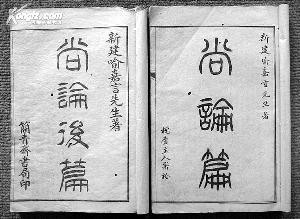 Kongfz.com
新建喻嘉言先生著
尚論篇
新建喻嘉言先生著
尚論後篇
簡青齋書局印